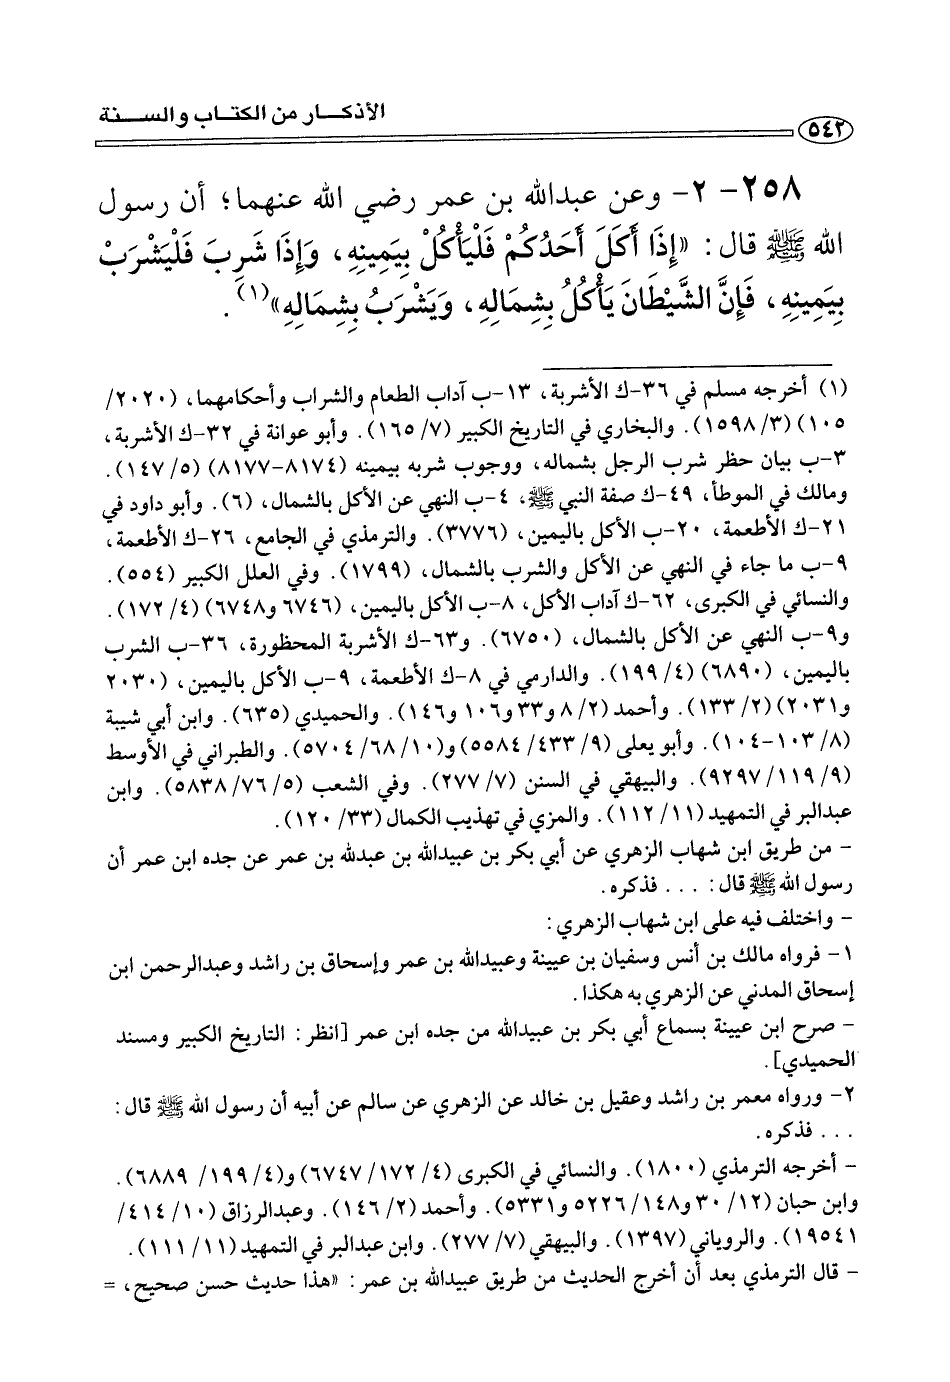 الأذكار من الكتاب والسنة
٥٤٢
٢٥٨- ٢- وعن عبدالله بن عمر رضي الله عنهما؛ أن رسول
الله ﷺ قال: «إِذَا أَكَلَ أَحَدُكُمْ فَلْيَأْكُلْ بِيَمِينِهِ، وَإِذَا شَرِبَ فَلْيَشْرَبْ
بِيَمِينِهِ، فَإِنَّ الشَّيْطَانَ يَأْكُلُ بِشِمَالِهِ، وَيَشْرَبُ بِشِمَالِهِ»(١).
(١) أخرجه مسلم في ٣٦-ك الأشربة، ١٣-ب آداب الطعام والشراب وأحكامهما، (٢٠٢٠/
١٠٥)(٣/ ١٥٩٨). والبخاري في التاريخ الكبير (٧/ ١٦٥). وأبو عوانة في ٣٢-ك الأشربة،
٣-ب بيان حظر شرب الرجل بشماله، ووجوب شربه بيمينه (٨١٧٤-٨١٧٧) (٥/ ١٤٧).
ومالك في الموطأ، ٤٩-ك صفة النبي ﷺ، ٤-ب النهي عن الأكل بالشمال، (٦). وأبو داود في
٢١-ك الأطعمة، ٢٠-ب الأكل باليمين، (٣٧٧٦). والترمذي في الجامع، ٢٦-ك الأطعمة،
٩-ب ما جاء في النهي عن الأكل والشرب بالشمال، (١٧٩٩). وفي العلل الكبير (٥٥٤).
والنسائي في الكبرى، ٦٢-ك آداب الأكل، ٨-ب الأكل باليمين، (٦٧٤٦ و٦٧٤٨) (٤/ ١٧٢).
و٩-ب النهي عن الأكل بالشمال، (٦٧٥٠). و٦٣-ك الأشربة المحظورة، ٣٦-ب الشرب
باليمين، (٦٨٩٠) (٤/ ١٩٩). والدارمي في ٨-ك الأطعمة، ٩-ب الأكل باليمين، (٢٠٣٠
و٢٠٣١)(٢/ ١٣٣). وأحمد (٢/ ٨ و٣٣ و١٠٦ و١٤٦). والحميدي (٦٣٥). وابن أبي شيبة
(٨/ ١٠٣-١٠٤). وأبو يعلى (٩/ ٤٣٣/ ٥٥٨٤) و(١٠/ ٦٨/ ٥٧٠٤). والطبراني في الأوسط
(٩/ ١١٩/ ٩٢٩٧). والبيهقي في السنن (٧/ ٢٧٧). وفي الشعب (٥/ ٧٦/ ٥٨٣٨). وابن
عبدالبر في التمهيد (١١/ ١١٢). والمزي في تهذيب الكمال (٣٣/ ١٢٠).
- من طريق ابن شهاب الزهري عن أبي بكر بن عبيدالله بن عبدلله بن عمر عن جده ابن عمر أن
رسول الله ﷺ قال: ... فذكره.
- واختلف فيه على ابن شهاب الزهري:
١- فرواه مالك بن أنس وسفيان بن عيينة وعبيدالله بن عمر وإسحاق بن راشد وعبدالرحمن ابن
إسحاق المدني عن الزهري به هكذا.
- صرح ابن عيينة بسماع أبي بكر بن عبيدالله من جده ابن عمر [انظر: التاريخ الكبير ومسند
الحميدي].
٢- ورواه معمر بن راشد وعقيل بن خالد عن الزهري عن سالم عن أبيه أن رسول الله ﷺ قال:
... فذكره.
- أخرجه الترمذي (١٨٠٠). والنسائي في الكبرى (٤/ ١٧٢/ ٦٧٤٧) و(٤/ ١٩٩/ ٦٨٨٩).
وابن حبان (١٢/ ٣٠ و١٤٨/ ٥٢٢٦ و٥٣٣١). وأحمد (٢/ ١٤٦). وعبدالرزاق (١٠/ ٤١٤/
١٩٥٤١). والروياني (١٣٩٧). والبيهقي (٧/ ٢٧٧). وابن عبدالبر في التمهيد (١١/ ١١١).
- قال الترمذي بعد أن أخرج الحديث من طريق عبيدالله بن عمر: «هذا حديث حسن صحيح، =